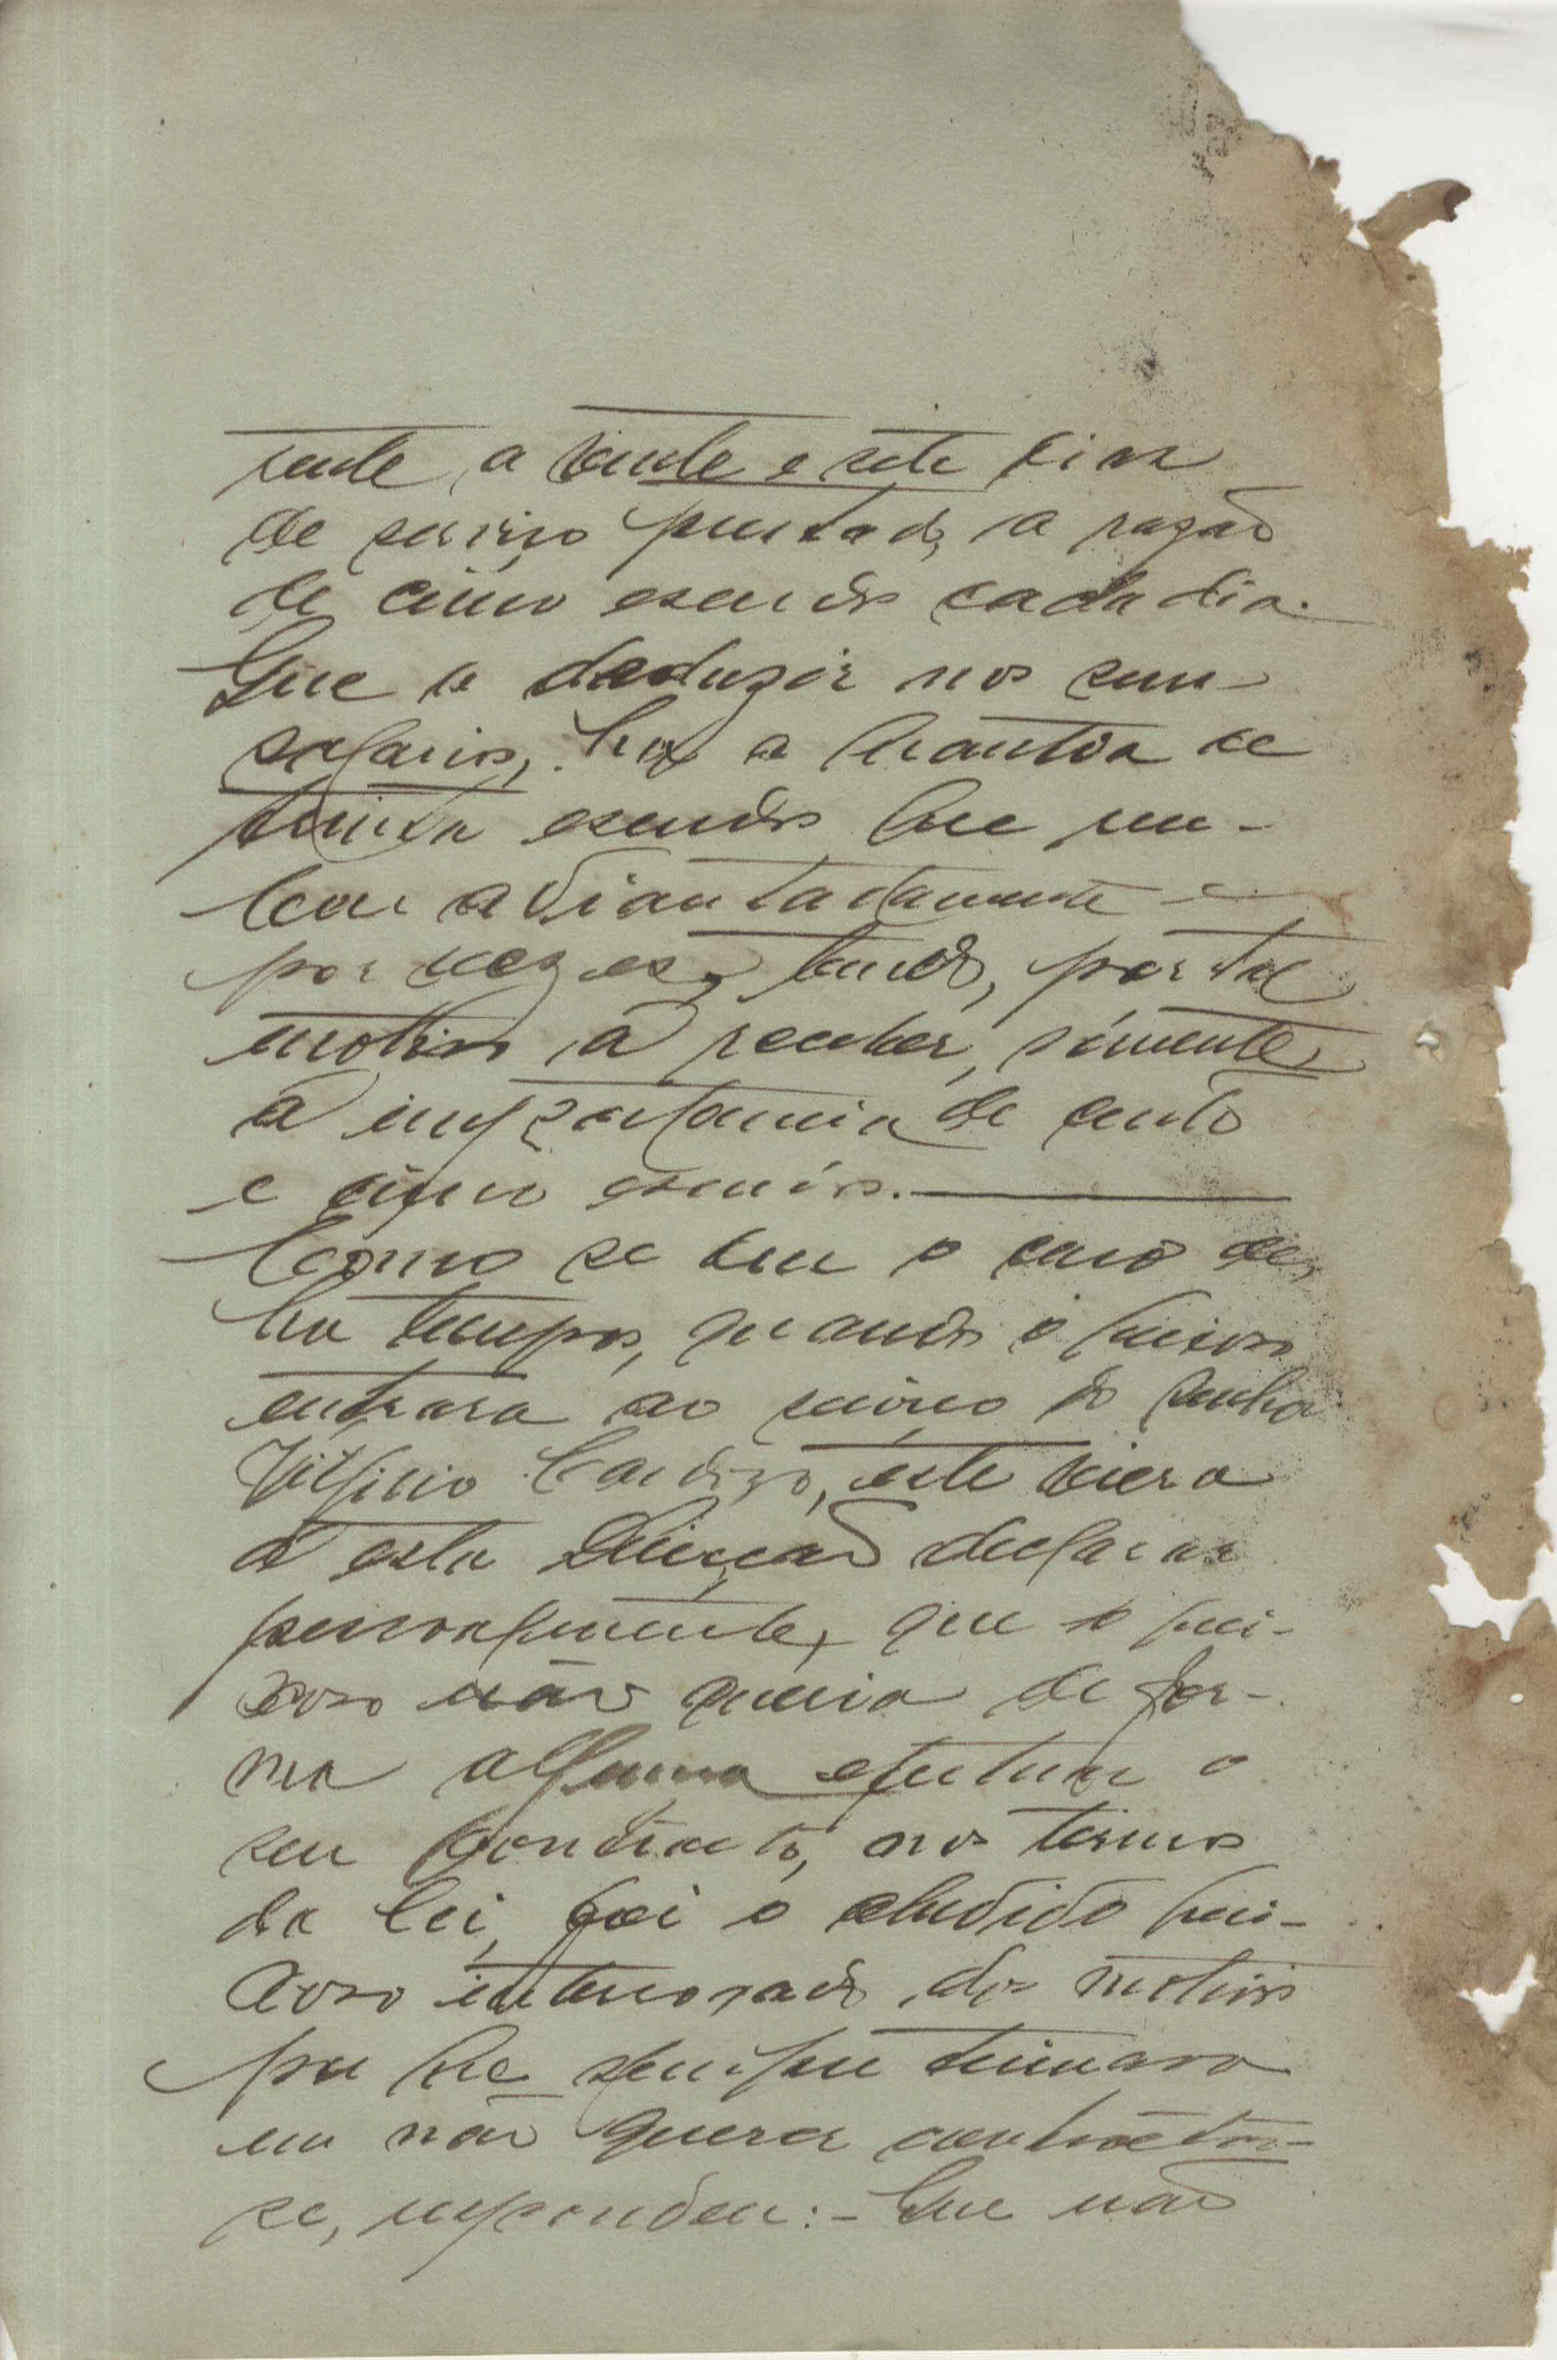 rente a vinte e sete dias
de serviço prestado, a razão
de cinco escudos cada dia.
Que a deduzir nos seus
salarios, ha a quantia de
trinta escudos que rece-
beu adiantadamente e
por vezes, tendo, por tal
motivo a receber, sómente
a importancia de cento
e cinco escudos.
Como se deu o caso de,
ha tempos, quando o queixoso
entrara ao serviço do senhor
Virgilio Cardozo, este viera
a esta Direcção declarar
pessoalmente, que o quei-
xoso não queria de for-
ma alguma efectuar o
seu contracto, nos termos
da lei, foi o aludido quei-
xoso interrogado dos motivos
por que sempre teimava
em não querer contractar-
se, respondeu:- Que não